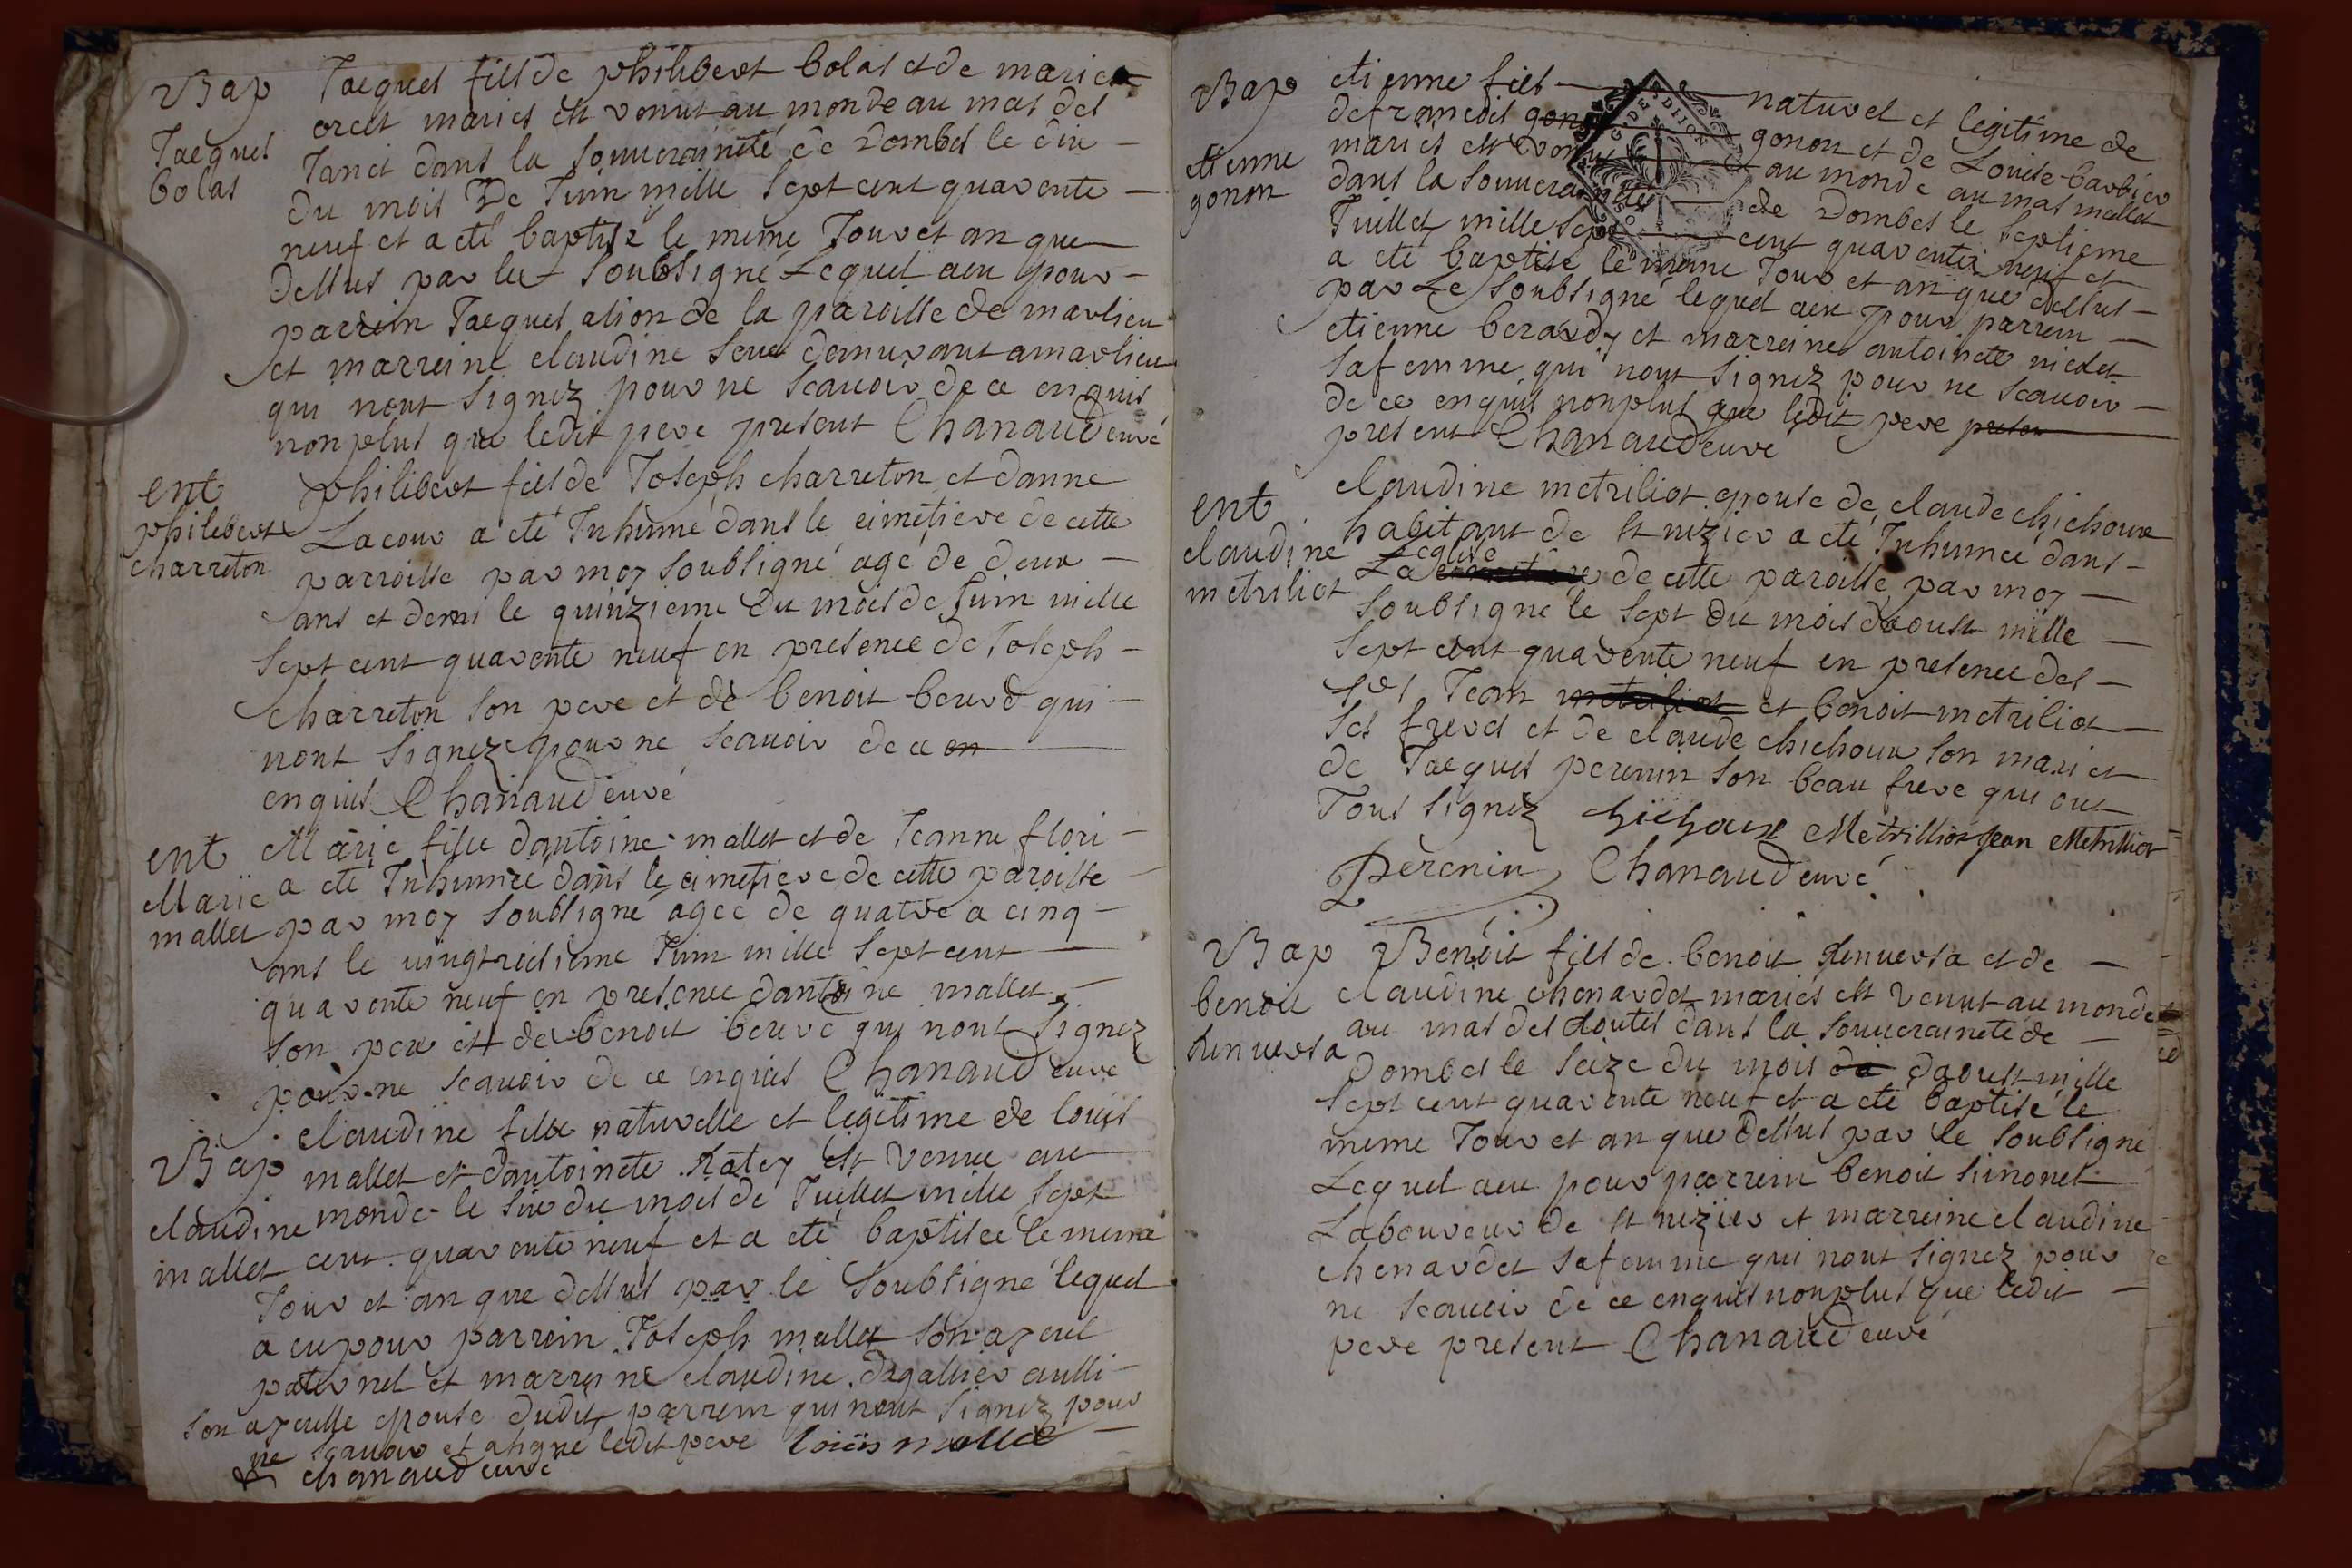 Bap
Jacques
bolas
Jacques fils de philibert bolas et de marie
orcet mariés est venut au monde au mas des
Janet dans la souueraineté de Dombes le dix
du mois De Juin mille sept cent quarente
neuf et a eté baptisé le meme Jour et an que
dessus par le soubsigné Lequel a eu pour
parrein Jacques alion de la paroisse de marlieu
et marreine claudine seue demurant a marlieu
qui nont signez pour ne scauoir de ce enquis
non plus que ledit pere present Chanaud curé
ent
philibert
charreton
philibert fils de Joseph charreton et danne
Lacour a eté Inhumé dans le cimetiere de cette
parroisse par moy soubsigné agé de deux
ans et demi le quinzieme du mois de Juin mille
sept cent quarente neuf en presence de Joseph
charreton son pere et de benoit berud qui
nont signez pour ne scauoir de ce en
enquis Chanaud curé
ent
Marie
mallet
Marie fille dantoine mallet et de Jeanne flori
a eté Inhumée dans le cimetiere de cette paroisse
par moy soubsigné agée de quatre a cinq
ans le uingtroisieme Juin mille sept cent
quarente neuf en presence dantoine mallet
son pere et de benoit beruc qui nont signez
pour ne scauoir de ce enquis Chanaud curé
Bap
claudine
mallet
claudine fille naturelle et legitime de louis
mallet et dantoinete Ratey est venue au
monde le six du mois de Juillet mille sept
cent quarente neuf et a eté baptisée le meme
Jour et an que dessus par le soubsigné lequel
a eu pour parrein Joseph mallet son ayeul
paternel et marreine claudine dagallier aussi
son ayeulle epouse dudit parrein qui nont signez pour
ne scauoir et a signé ledit pere louis mallet
chanaud curé
Bap
etienne
gonon
etienne fils naturel et legitime de
de francois gon gonon et de Louise barbier
mariés est venut au monde au mas mallet
dans la souueraineté de Dombes le septieme
Juillet mille sept cent quarente neuf et
a eté baptisé le meme Jour et an que dessus
par Le soubsigné lequel a eu pour parrein
etienne berardy et marreine antoinete nicolet
sa femme qui nont signez pour ne scauoir
de ce enquis non plus que ledit pere presen
present Chanaud curé
ent
claudine
metriliot
claudine metriliot epouse de claude chichoux
habitant de st nizier a eté Inhumée dans
Leglise
La cimetiere de cette paroisse par moy
soubsigné le sept du mois daoust mille
sept cent quarente neuf en presence des
srs Jean metriliot et benoit metriliot
ses freres et de claude chichoux son mari et
de Jacques perenin son beau frere qui ont
Tous signez chichoux Metrilliot Jean Metrilliot
Perenin Chanaud curé
Bap
benoit
Renversa
Benoit fils de benoit Renversa et de
claudine chenardet mariés est venut au monde
au mas des Routes dans la souueraineté de
Dombes le seize du mois de daoust mille
sept cent quarente neuf et a eté baptisé le
meme Jour et an que dessus par le soubsigné
Lequel a eu pour parrein benoit simonet
Laboureur de st nizier et marreine claudine
chenardet sa femme qui nont signez pour
ne scauoir de ce enquis non plus que ledit
pere present Chanaud curé